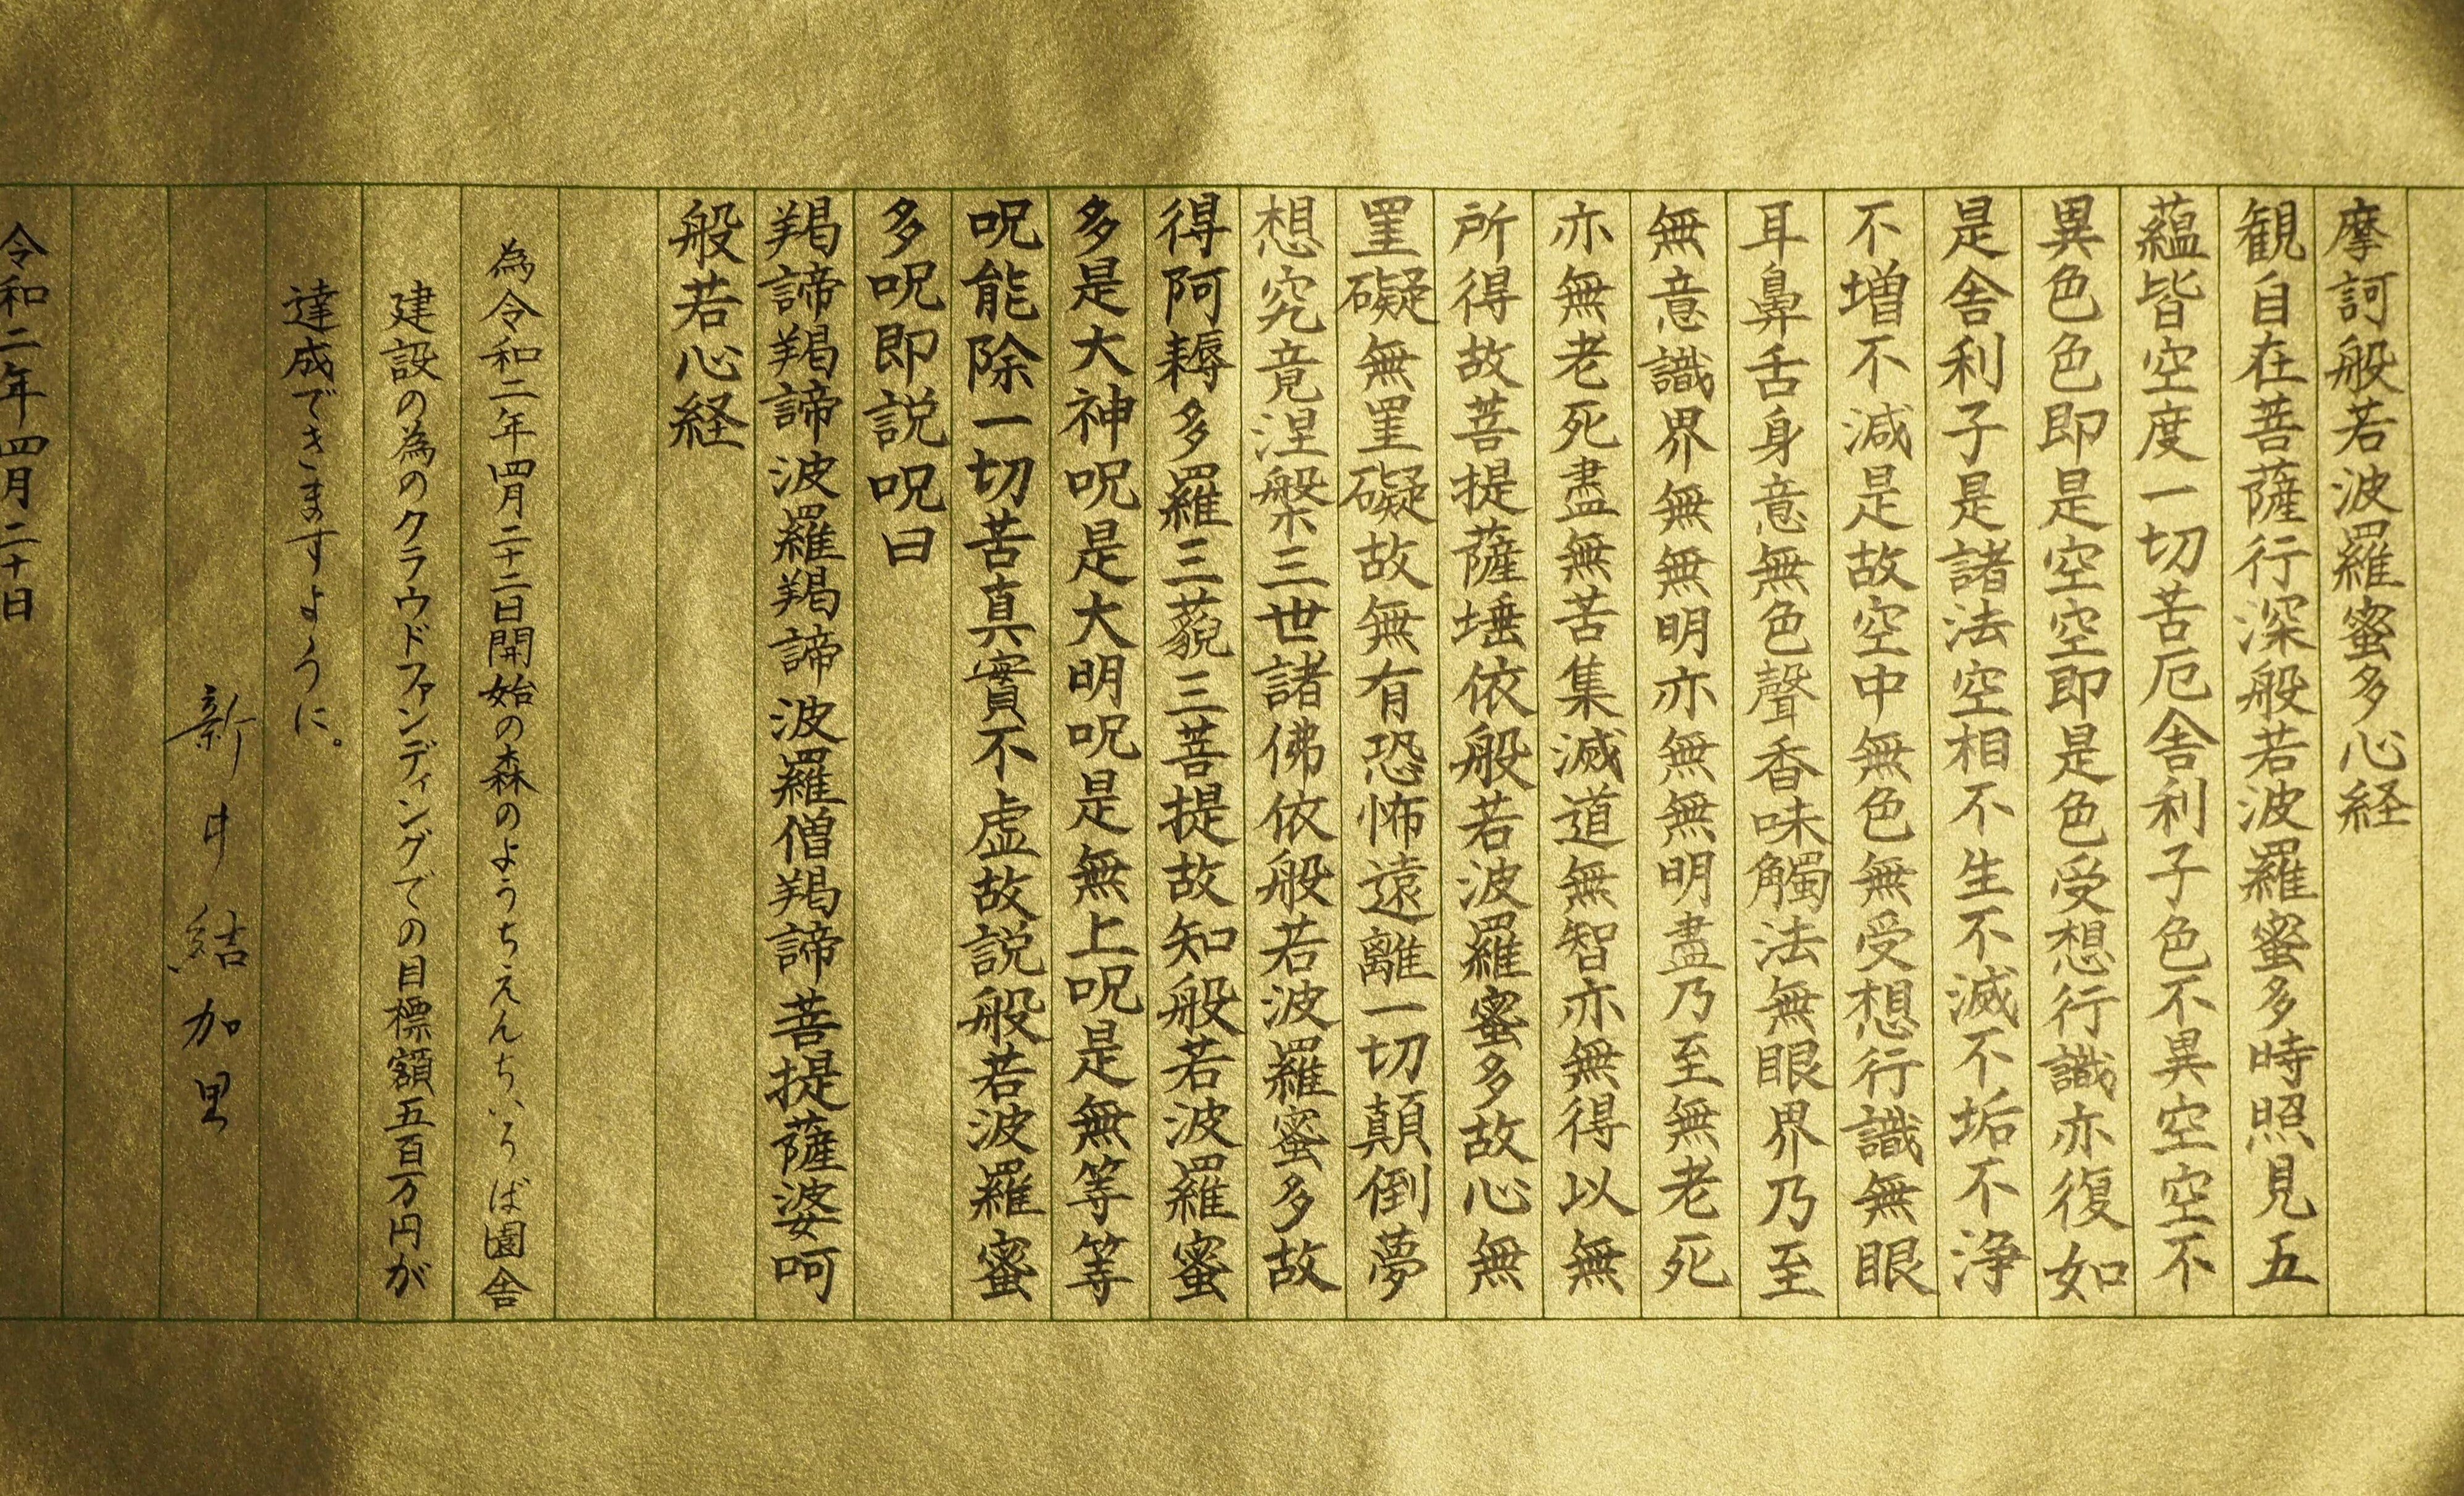 摩訶般若波羅蜜多心経
観自在菩薩行深般若波羅蜜多時照見五
蘊皆空度一切苦厄舎利子色不異空空不
異色色即是空空即是色受想行識亦復如
是舎利子是諸法空相不生不滅不垢不浄
不増不減是故空中無色無受想行識無眼
耳鼻舌身意無色聲香味觸法無眼界乃至
無意識界無無明亦無無明盡乃至無老死
亦無老死盡無苦集滅道無智亦無得以無
所得故菩提薩埵依般若波羅蜜多故心無
罣礙無罣礙故無有恐怖遠離一切顛倒夢
想究竟涅槃三世諸佛依般若波羅蜜多故
得阿耨多羅三藐三菩提故知般若波羅蜜
多是大神呪是大明呪是無上呪是無等等
呪能除一切苦真實不虚故説般若波羅蜜
多呪即説呪曰
羯諦羯諦波羅羯諦波羅僧羯諦菩提薩婆呵
般若心経
為令和二年四月二十二日開始の森のようちえんちいろば園舎
建設の為のクラウドファンディングでの目標額五百万円が
達成できますように。
新井結加里
令和二年四月二十日